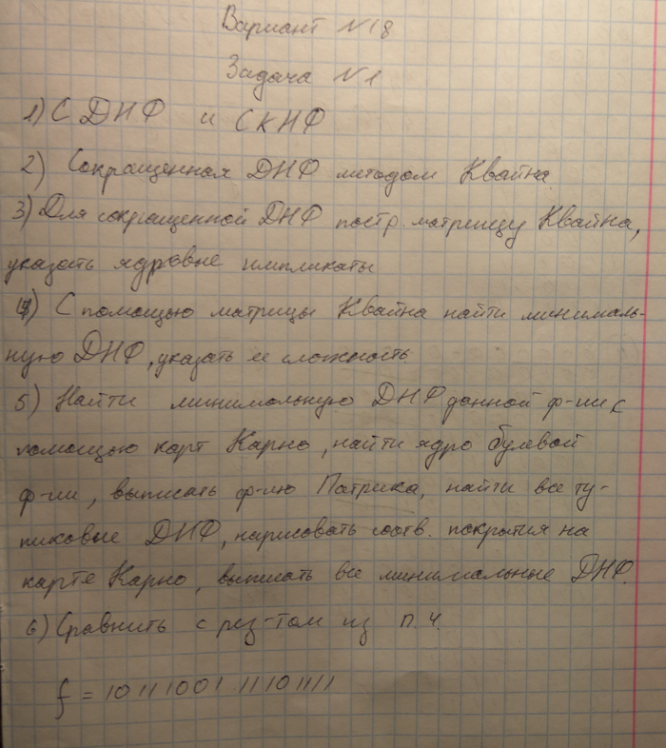 Вариант №18
Задача №1
1) СДНФ и СКНФ
2) Сокращенная ДНФ методом Квайна
3) Для сокращенной ДНФ постр. матрицу Квайна,
указать ядровые импликаты
4) С помощью матрицы Квайна найти минималь-
ную ДНФ, указать ее сложность
5) Найти минимальную ДНФ данной ф-ии с
помощью карт Карно, найти ядро булевой
ф-ии, выписать ф-лю Патрика, найти все ту-
пиковые ДНФ, нарисовать соотв. покрытия на
карте Карно, выписать все минимальные ДНФ.
6) Сравнить с рез-том из п. 4.
f = 10111001 11101111